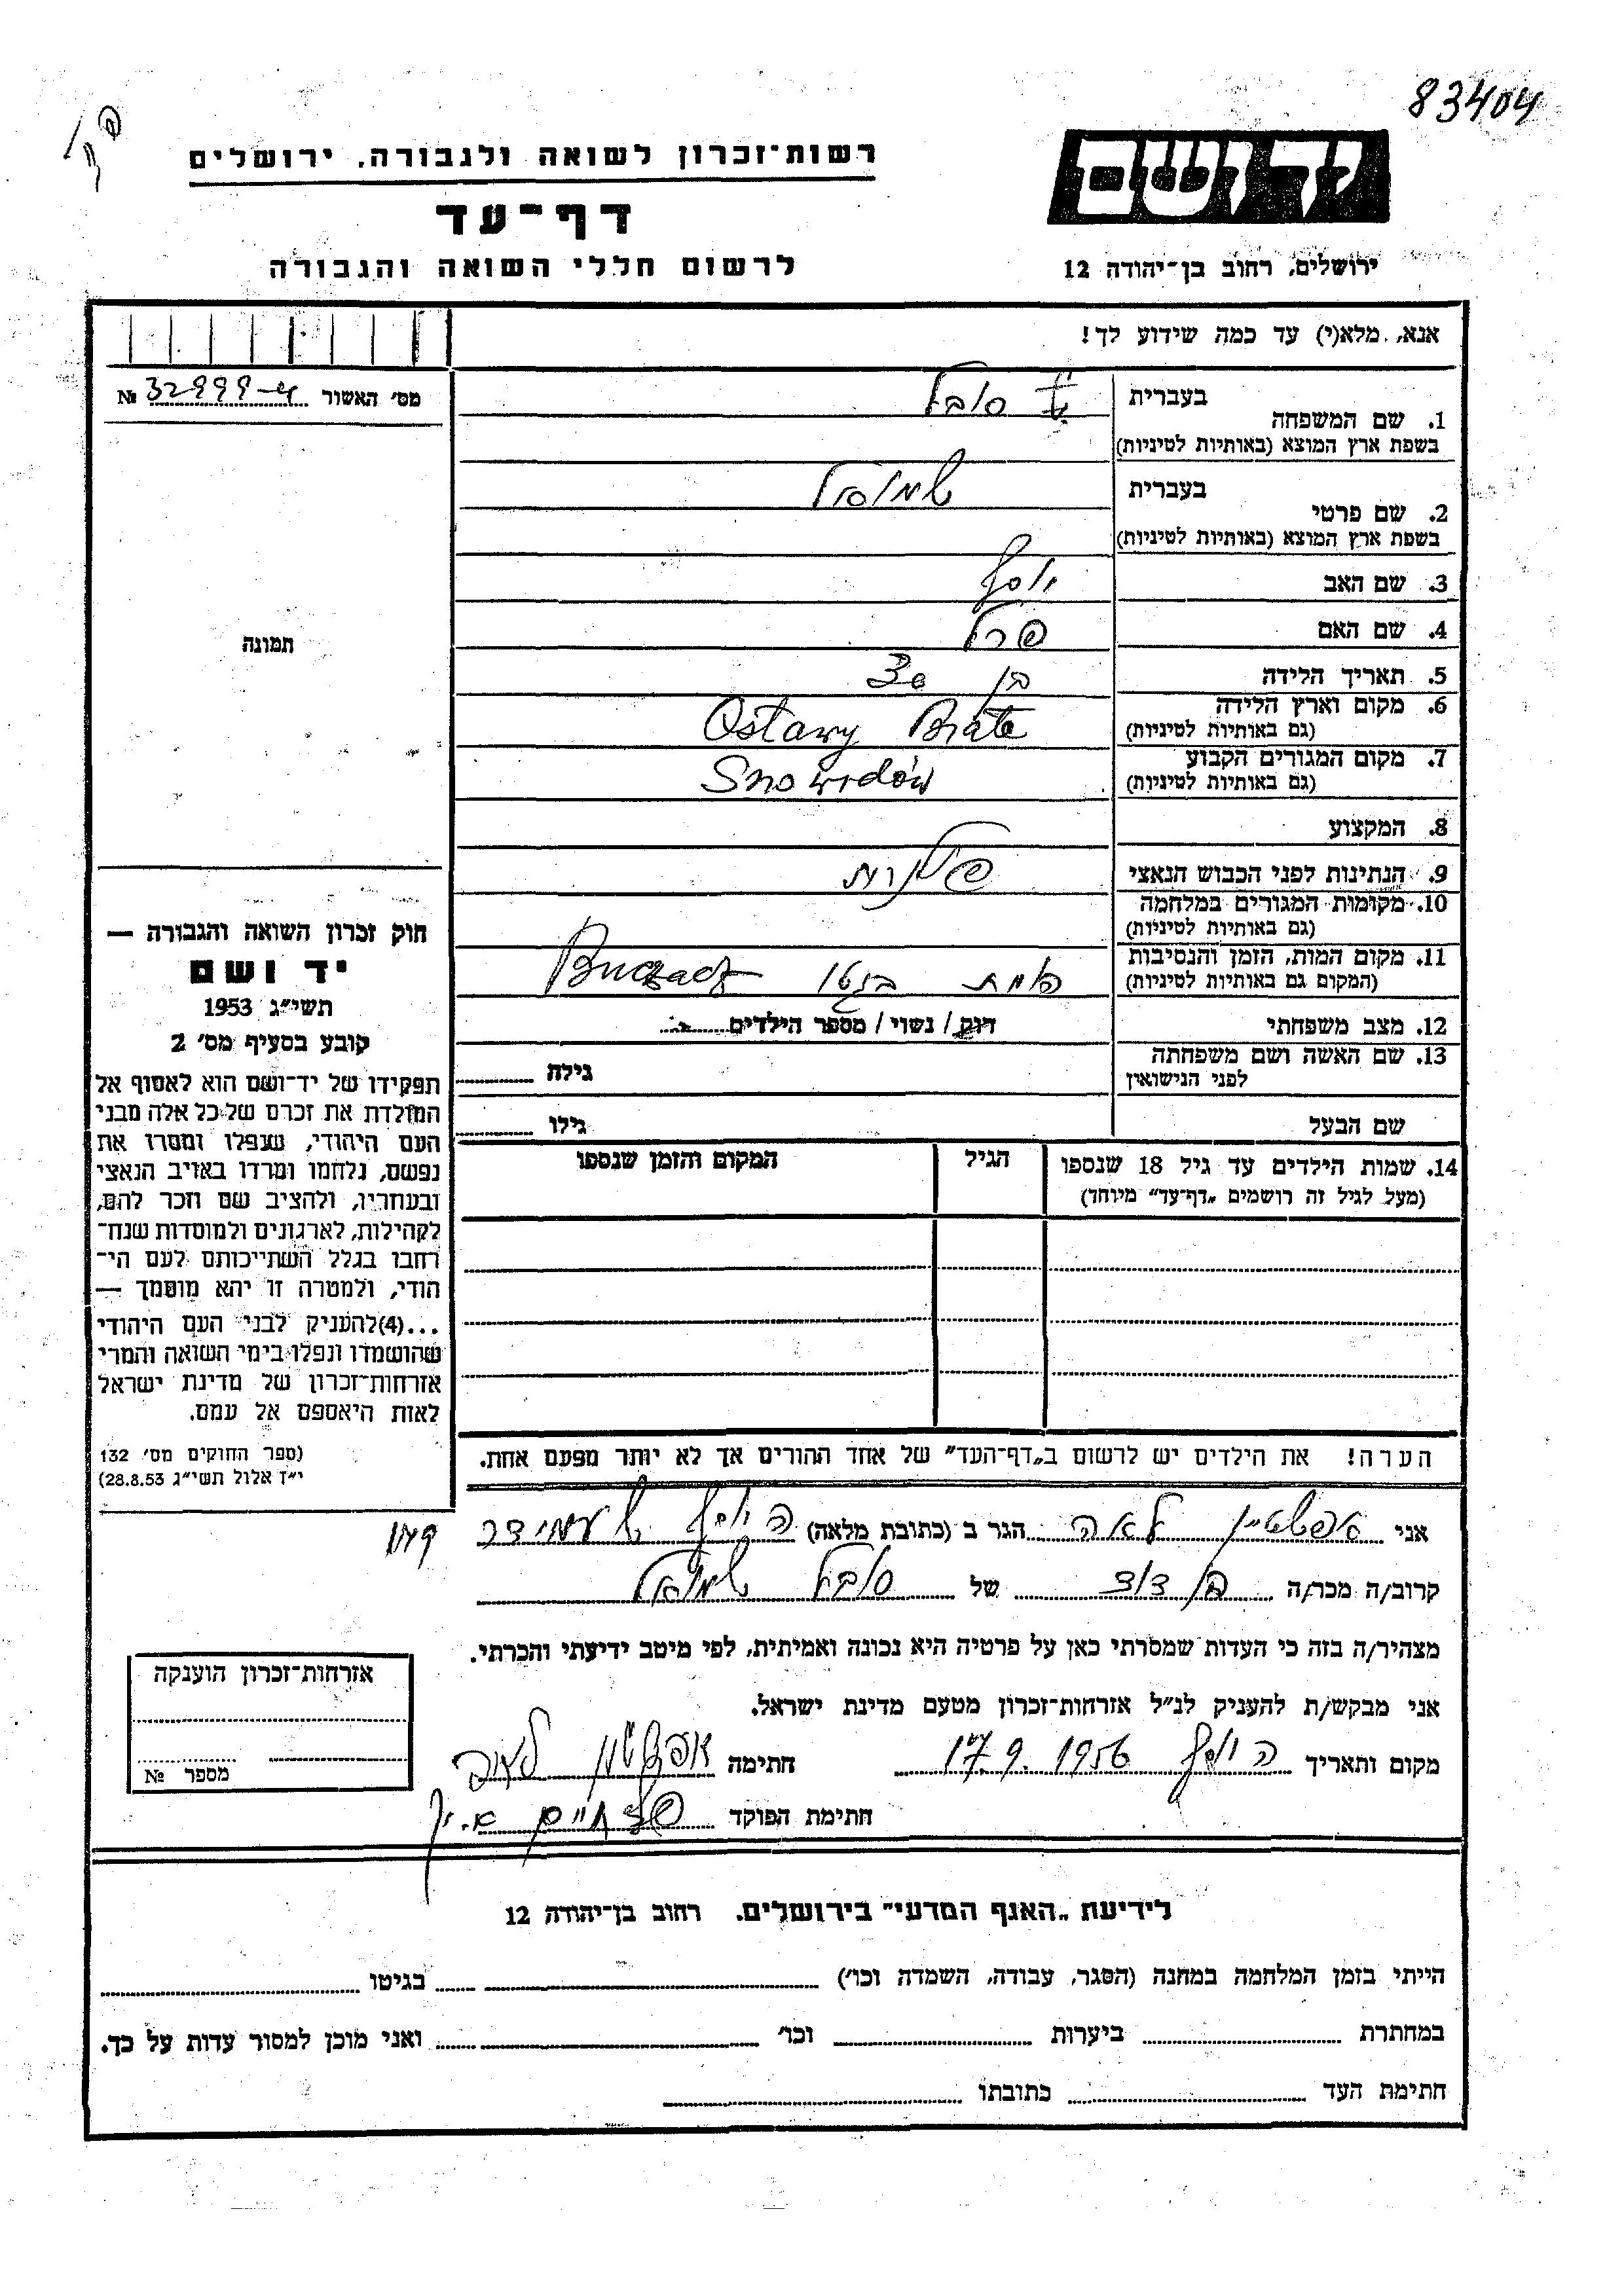 83404
רשות־זכרון לשואה ולגבורה. ירושלים
יד ושם
דף־עד
לרשום חללי השואה והגבורה
ירושלים, רחוב בן־יהודה 12
אנא, מלא(י) עד כמה שידוע לך!
מס׳ האשור № 32999-4
בעברית סובל
1. שם המשפחה
בשפת ארץ המוצא (באותיות לטיניות)
בעברית שמואל
2. שם פרטי
בשפת ארץ המוצא (באותיות לטיניות)
3. שם האב יוסף
4. שם האם פרל
תמונה
5. תאריך הלידה בן 30
6. מקום וארץ הלידה
(גם באותיות לטיניות)
7. מקום המגורים הקבוע Snowidów
(גם באותיות לטיניות)
8. המקצוע
9. הנתינות לפני הכבוש הנאצי פולנית
10. מקומות המגורים במלחמה
(גם באותיות לטיניות)
11. מקום המות, הזמן והנסיבות
(המקום גם באותיות לטיניות)
בגטו Buczacz
12. מצב משפחתי רווק / נשוי / מספר הילדים
13. שם האשה ושם משפחתה
לפני הנישואין
גילה
שם הבעל גילו
14. שמות הילדים עד גיל 18 שנספו
(מעל לגיל זה רושמים „דף־עד״ מיוחד)
הגיל
המקום והזמן שנספו
חוק זכרון השואה והגבורה —
יד ושם
תשי״ג 1953
קובע בסעיף מס׳ 2
תפקידו של יד־ושם הוא לאסוף אל
המולדת את זכרם של כל אלה מבני
העם היהודי, שנפלו ומסרו את
נפשם, נלחמו ומרדו באויב הנאצי
ובעוזריו, ולהציב שם וזכר להם,
לקהילות, לארגונים ולמוסדות שנח־
רבו בגלל השתייכותם לעם הי־
הודי, ולמטרה זו יהא מוסמך —
...(4)להעניק לבני העם היהודי
שהושמדו ונפלו בימי השואה והמרי
אזרחות־זכרון של מדינת ישראל
לאות היאספם אל עמם.
(ספר החוקים מס׳ 132
י״ז אלול תשי״ג 28.8.53)
הערה! את הילדים יש לרשום ב„דף־העד״ של אחד ההורים אך לא יותר מפעם אחת.
אני אפשטיין לאה הגר ב (כתובת מלאה)
קרוב/ה מכר/ה בן דוד של סובל שמואל
מצהיר/ה בזה כי העדות שמסרתי כאן על פרטיה היא נכונה ואמיתית, לפי מיטב ידיעתי והכרתי.
אני מבקש/ת להעניק לנ״ל אזרחות־זכרון מטעם מדינת ישראל.
מקום ותאריך 17.9.1956 חתימה אפשטיין לאה
חתימת הפוקד
אזרחות־זכרון הוענקה
מספר №
לידיעת „האגף המדעי״ בירושלים. רחוב בן־יהודה 12
הייתי בזמן המלחמה במחנה (הסגר, עבודה, השמדה וכו׳) בגיטו
במחתרת ביערות וכו׳ ואני מוכן למסור עדות על כך.
חתימת העד כתובתו